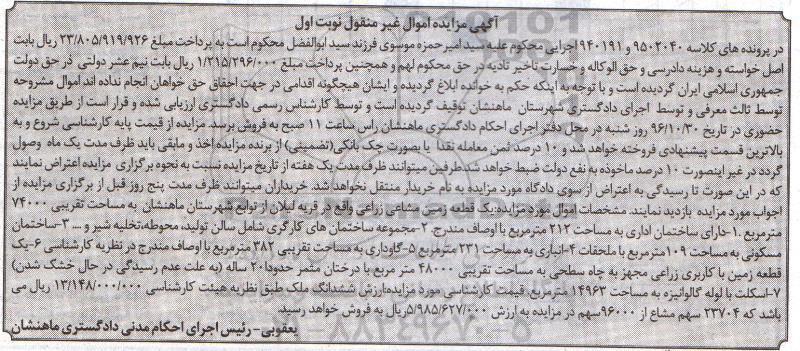 آگهی مزایده اموال غیر منقول نوبت اول
در پرونده های کلاسه ۹۵۰۲۰۴۰ و ۹۴۰۱۹۱ اجرایی محکوم علیه سید امیر حمزه موسوی فرزند سید ابوالفضل محکوم است به پرداخت مبلغ ۲۳/۸۰۵/۹۱۹/۹۲۶ ریال بابت
اصل خواسته و هزینه دادرسی و حق الوکاله و خسارت تاخیر تادیه در حق محکوم لهم و همچنین پرداخت مبلغ ۱/۲۱۵/۲۹۶/۰۰۰ ریال بابت نیم عشر دولتی در حق دولت
جمهوری اسلامی ایران گردیده است و با توجه به اینکه حکم به خوانده ابلاغ گردیده و ایشان هیچگونه اقدامی در جهت احقاق حق خواهان انجام نداده اند اموال مشروحه
توسط ثالث معرفی و توسط اجرای دادگستری شهرستان ماهنشان توقیف گردیده است و توسط کارشناس رسمی دادگستری ارزیابی شده و قرار است از طریق مزایده
حضوری در تاریخ ۹۶/۱۰/۳۰ روز شنبه در محل دفتر اجرای احکام دادگستری ماهنشان راس ساعت ۱۱ صبح به فروش برسد. مزایده از قیمت پایه کارشناسی شروع و به
بالاترین قسمت پیشنهادی فروخته خواهد شد و ۱۰ درصد ثمن معامله نقدا یا بصورت چک بانکی (تضمینی) از برنده مزایده اخذ و مابقی باید ظرف مدت یک ماه وصول
گردد در غیر اینصورت ۱۰ درصد ماخوذه به نفع دولت ضبط خواهد شد.طرفین میتوانند ظرف مدت یک هفته از تاریخ مزایده نسبت به نحوه برگزاری مزایده اعتراض نمایند
که در این صورت تا رسیدگی به اعتراض از سوی دادگاه مورد مزایده به نام خریدار منتقل نخواهد شد. خریداران میتوانند ظرف مدت پنج روز قبل از برگزاری مزایده از
اجواب مورد مزایده بازدید نمایند. مشخصات اموال مورد مزایده:یک قطعه زمین مشاعی زراعی واقع در قریه لیلان از توابع شهرستان ماهنشان به مساحت تقریبی ۷۴۰۰۰
مترمربع .۱-دارای ساختمان اداری به مساحت ۲۱۲ مترمربع با اوصاف مندرج ۲-مجموعه ساختمان های کارگری شامل سالن تولید، محوطه،تخلیه شیر و ... ۳-ساختمان
مسکونی به مساحت ۱۰۹ مترمربع با ملحقات ۴-انباری به مساحت ۲۳۱ مترمربع ۵-گاوداری به مساحت تقریبی ۳۸۲ مترمربع با اوصاف مندرج در نظریه کارشناسی ۶-یک
قطعه زمین با کاربری زراعی مجهز به چاه سطحی به مساحت تقریبی ۴۸۰۰۰ متر مربع با درختان مثمر حدودا ۲۰ ساله (به علت عدم رسیدگی در حال خشک شدن)
۷-اسکلت با لوله گالوانیزه به مساحت ۱۴۹۶۳ مترمربع. قیمت کارشناسی مورد مزایده:ارزش ششدانگ ملک طبق نظریه هیئت کارشناسی ۱۳/۱۴۸/۰۰۰/۰۰۰ ریال می
باشد که ۲۳۷۰۴ سهم مشاع از ۹۶۰۰۰سهم در مزایده به ارزش ۵/۹۸۵/۶۲۷/۰۰۰ریال به فروش خواهد رسید.
یعقوبی- رئیس اجرای احکام مدنی دادگستری ماهنشان